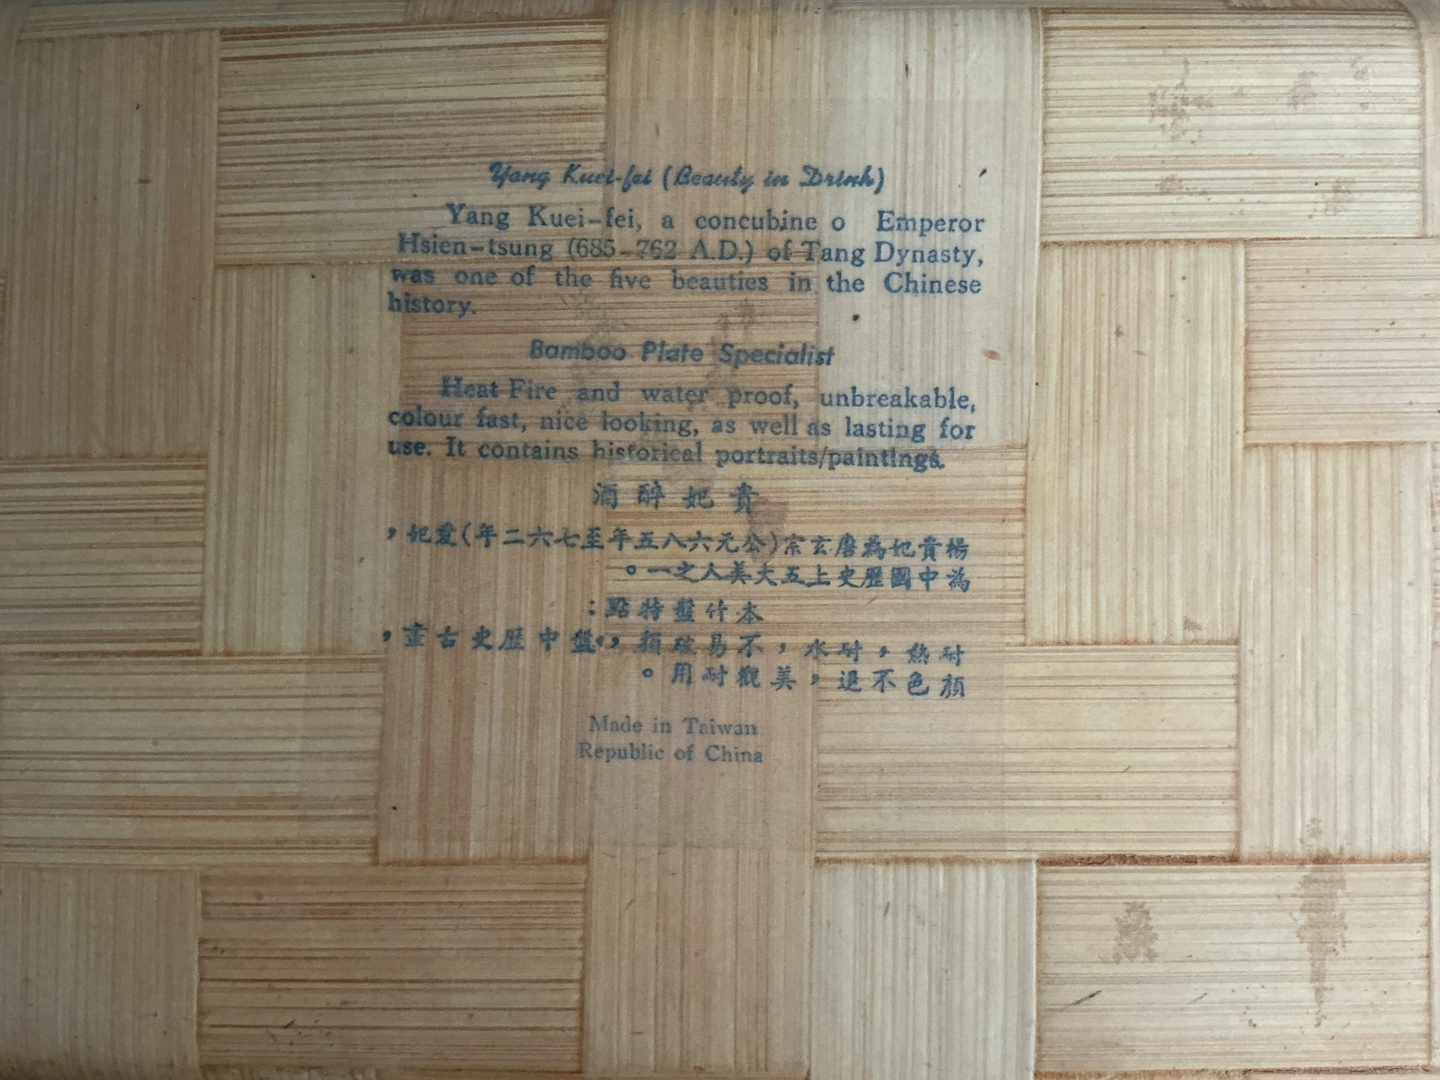 Yang Kuei-fei (Beauty in Drink)
Yang Kuei-fei, a concubine o Emperor
Hsien-tsung (685-762 A.D.) of Tang Dynasty,
was one of the five beauties in the Chinese
history.
Bamboo Plate Specialist
Heat Fire and water proof, unbreakable,
colour fast, nice looking, as well as lasting for
use. It contains historical portraits/paintings.
貴妃醉酒
楊貴妃為唐玄宗(公元六八五年至七六二年)愛妃,
為中國歷史上五大美人之一。
本竹盤特點:
耐熱,耐水,不易破損,盤中歷史古畫,
顏色不退,美觀耐用。
Made in Taiwan
Republic of China